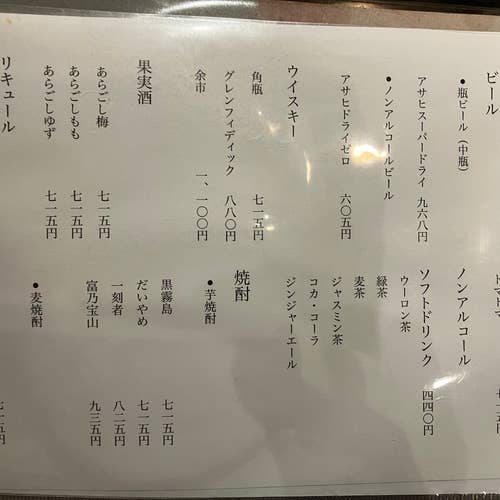 ビール
●瓶ビール（中瓶）
アサヒスーパードライ 九六八円
●ノンアルコールビール
アサヒドライゼロ 六〇五円
ウイスキー
角瓶 七一五円
グレンフィディック 八八〇円
余市 一、一〇〇円
果実酒
あらごし梅 七一五円
あらごしもも 七一五円
あらごしゆず 七一五円
リキュール
ノンアルコール
ソフトドリンク 四四〇円
ウーロン茶
緑茶
麦茶
ジャスミン茶
コカ・コーラ
ジンジャーエール
焼酎
●芋焼酎
黒霧島 七一五円
だいやめ 七一五円
一刻者 八二五円
富乃宝山 九三五円
●麦焼酎